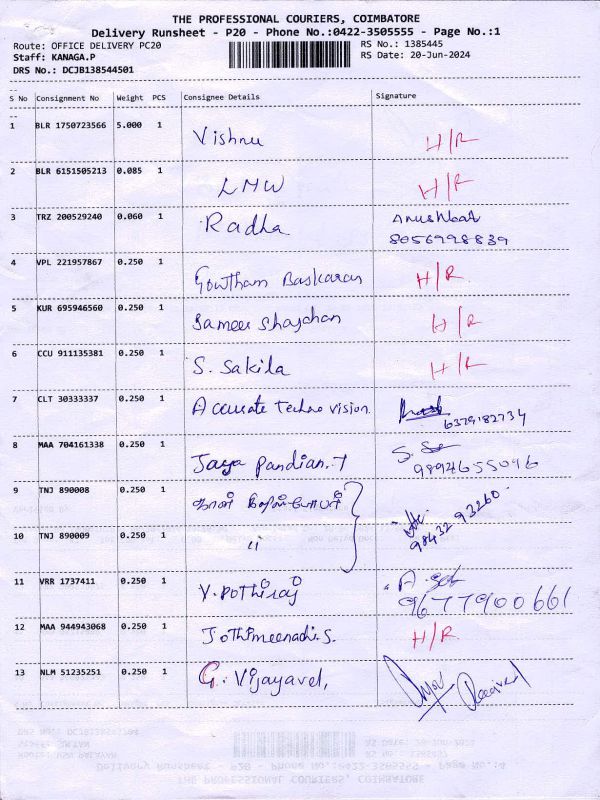 THE PROFESSIONAL COURIERS, COIMBATORE
Delivery Runsheet - P20 - Phone No.:0422-3505555 - Page No.:1
Route: OFFICE DELIVERY PC20
RS No.: 1385445
Staff: KANAGA.P
RS Date: 20-Jun-2024
DRS No.: DCJB138544501
S No Consignment No Weight PCS Consignee Details Signature
1 BLR 1750723566 5.000 1 Vishnu H/R
2 BLR 6151505213 0.085 1 LMW H/R
3 TRZ 200529240 0.060 1 Radha
8056998839
4 VPL 221957867 0.250 1 Gowtham Baskaran H/R
5 KUR 695946560 0.250 1 Sameer Shajahan H/R
6 CCU 911135381 0.250 1 S. Sakila H/R
7 CLT 30333337 0.250 1 Accurate Techno vision.
6379182734
8 MAA 704161338 0.250 1 Jaya Pandian.T
9894655096
9 TNJ 890008 0.250 1
98432 93260
10 TNJ 890009 0.250 1 "
11 VRR 1737411 0.250 1 V.Pothiraj
9677900661
12 MAA 944943068 0.250 1 Jothimeenadi.S. H/R
13 NLM 51235251 0.250 1 G. Vijayavel, Received